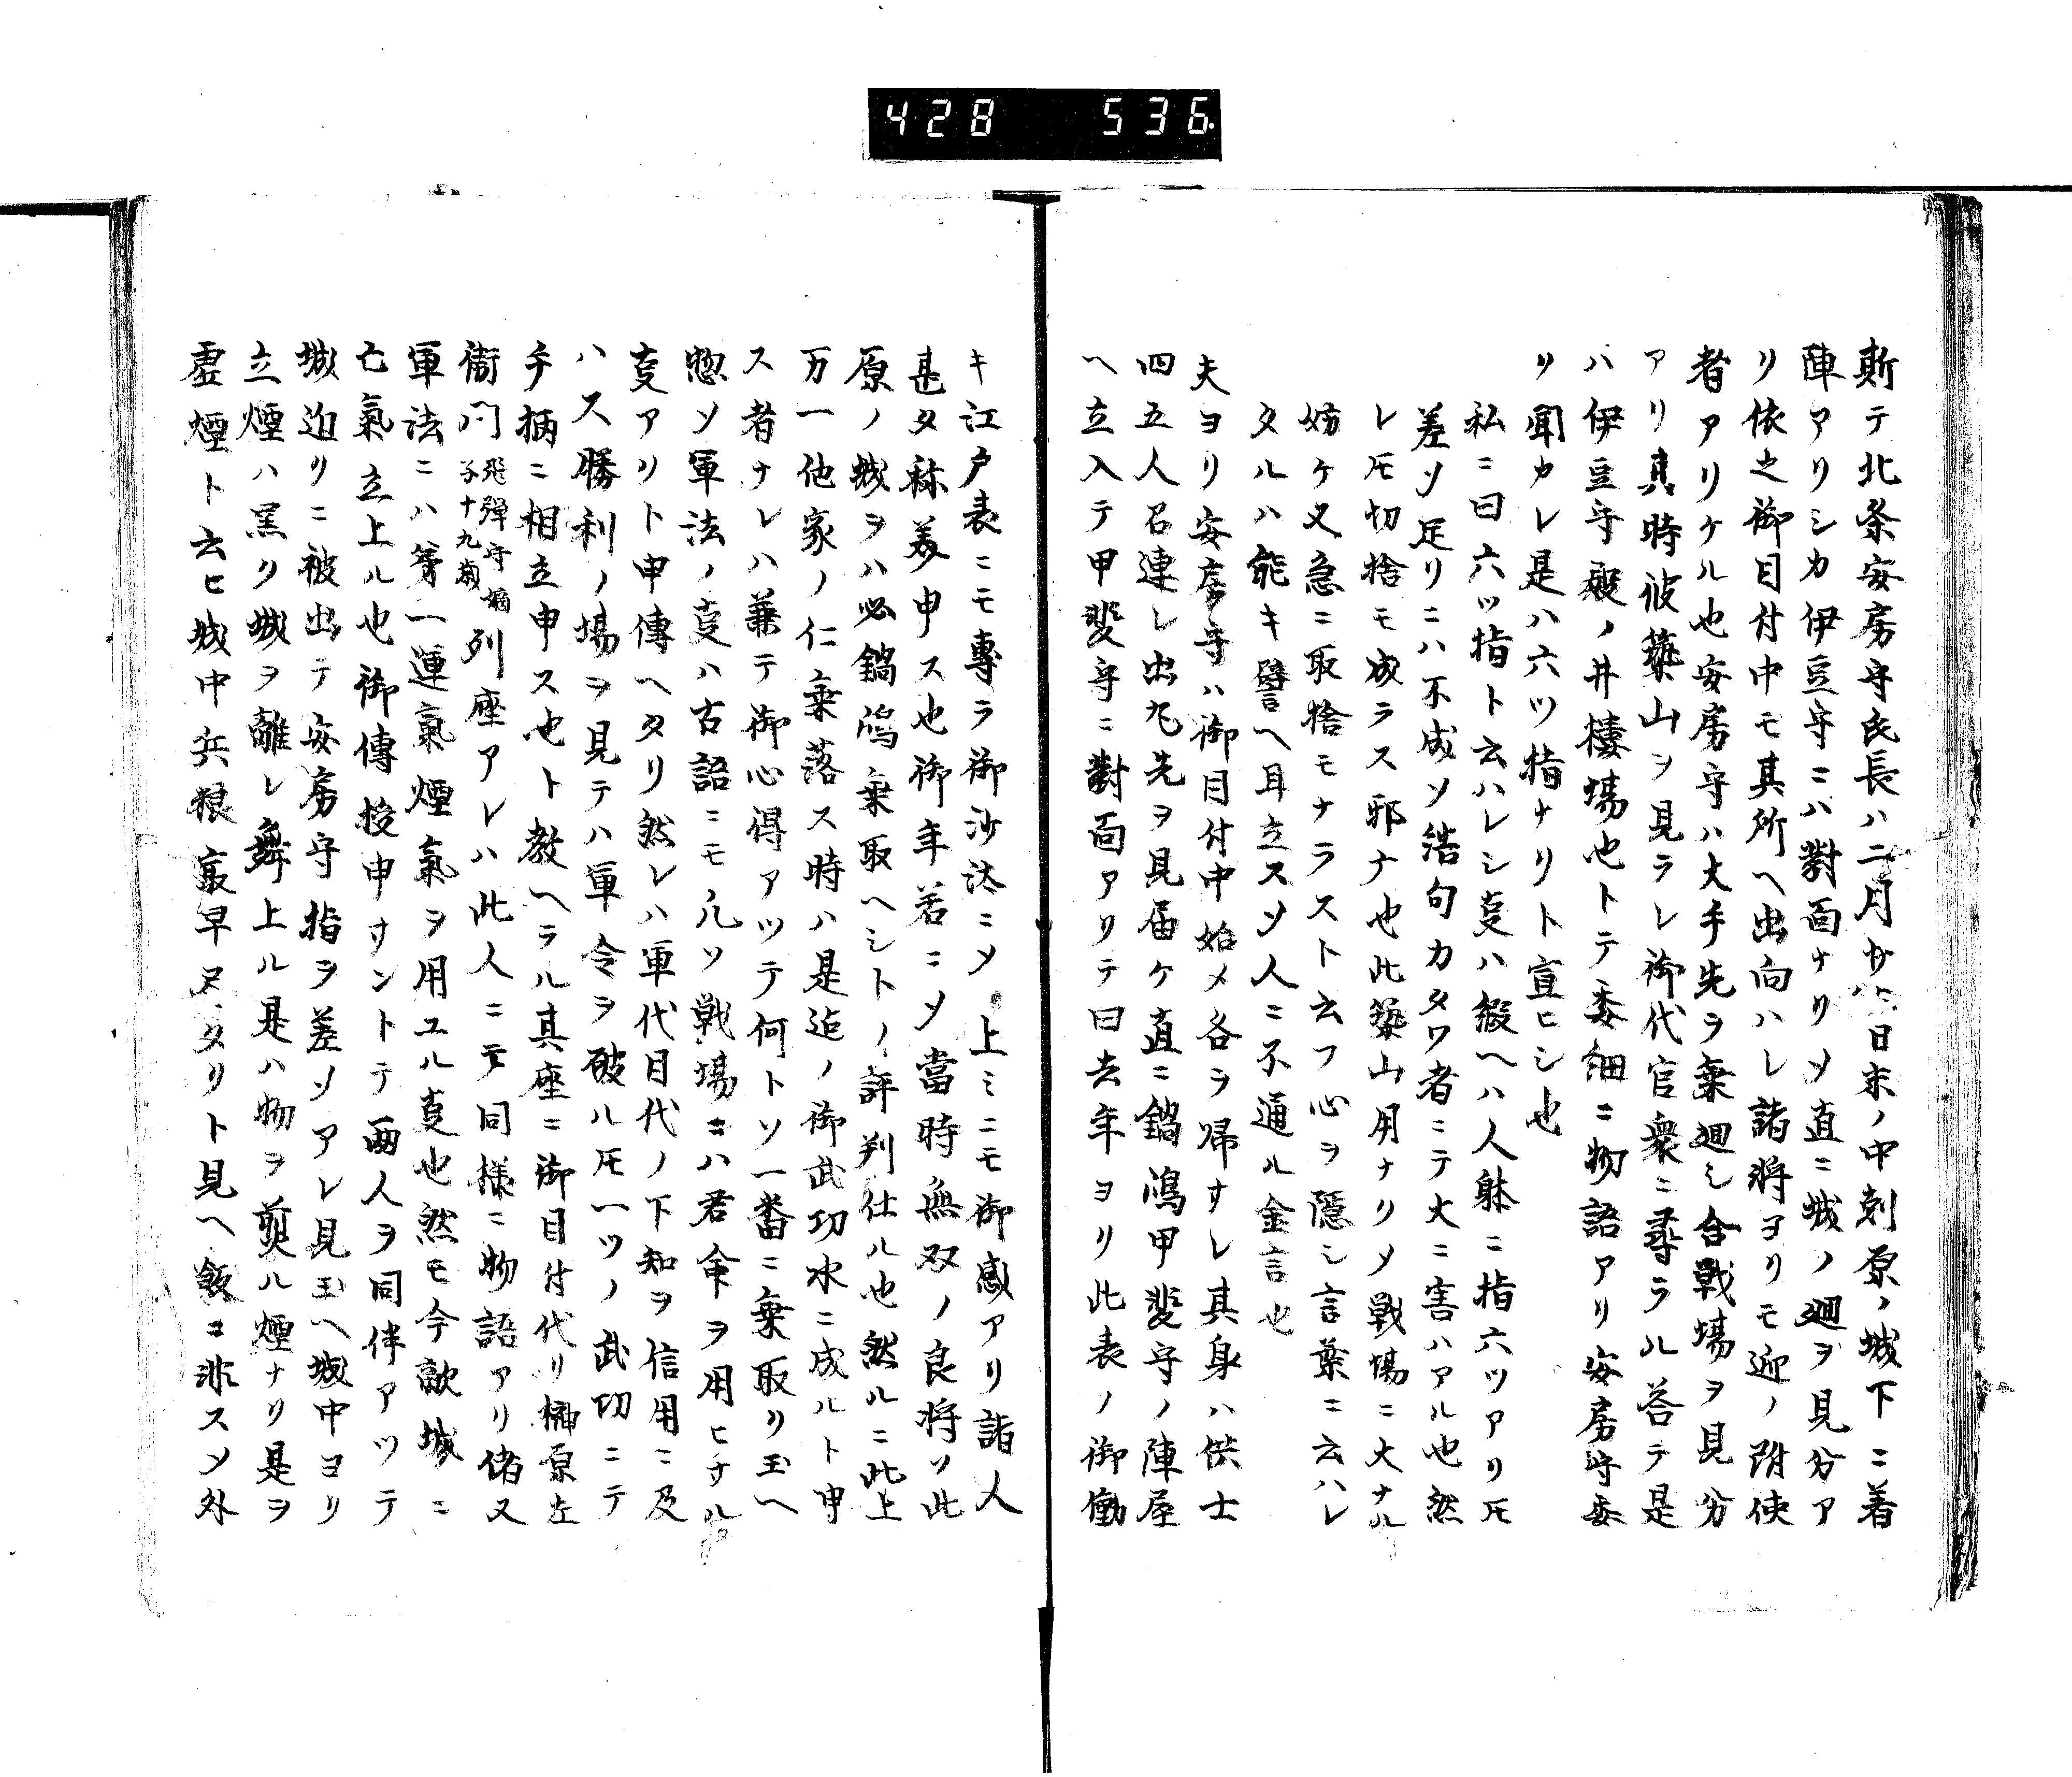 428 536.
斯テ北条安房守氏長ハ二月廿八日末ノ中剋原ノ城下ニ着
陣アリシカ伊豆守ニハ對面ナリソ直ニ城ノ廻ヲ見分ア
リ依之御目付中モ其所ヘ出向ハレ諸将ヨリモ迎ノ附使
者アリケル也安房守ハ大手先ヲ乗廻シ合戰場ヲ見分
アリ真時彼築山ヲ見ラレ御代官衆ニ尋ラル答テ是
ハ伊豆守殿ノ井樓場也トテ委細ニ物語アリ安房守委
リ聞カレ是ハ六ツ指ナリト宣ヒシ也
私ニ曰六ツ指ト云ハレシ叓ハ縦ヘハ人躰ニ指六ツアリ𪜈
差ソ足リニハ不成ソ結句カタワ者ニテ大ニ害ハアル也然
レ𪜈切捨モ成ラス邪ナ也此築山用ナリメ戰場ニ大ナル
妨ケ又急ニ取捨モナラスト云フ心ヲ隠シ言葉ニ云ハレ
タルハ能キ譬ヘ耳立スソ人ニ不通ル金言也
夫ヨリ安房守ハ御目付中始メ各ヲ帰サレ其身ハ供士
四五人召連レ出丸先ヲ見届ケ直ニ鍋嶋甲斐守ノ陣屋
ヘ立入テ甲斐守ニ對面アリテ曰去年ヨリ此表ノ御働
キ江戸表ニモ專ラ御沙汰ニメ上ミニモ御感アリ諸人
甚タ称美申ス也御年若ニメ當時無双ノ良将ソ此
原ノ城ヲハ必鍋嶋乗取ヘシトノ評判仕ル也然ルニ此上
万一他家ノ仁乗落ス時ハ是迄ノ御武功水ニ成ルト申
ス者ナレハ兼テ御心得アツテ何トソ一番ニ乗取リ玉ヘ
惣ソ軍法ノ叓ハ古語ニモ凡ソ戰場ニハ君命ヲ用ヒサル
叓アリト申傳ヘタリ然レハ軍代目代ノ下知ヲ信用ニ及
ハス勝利ノ場ヲ見テハ軍令ヲ破ル𪜈一ツノ武功ニテ
手柄ニ相立申ス也ト教ヘラル其座ニ御目付代リ榊原左
衞門 飛彈守嫡子十九歳 列座アレハ此人ニモ同様ニ物語アリ偖又
軍法ニハ第一運氣煙氣ヲ用ユル叓也然モ今敵城ニ
亡氣立上ル也御傳授申サントテ兩人ヲ同伴アツテ
城迫リニ被出テ安房守指ヲ差ソアレ見玉ヘ城中ヨリ
立煙ハ黒ク城ヲ離レ舞上ル是ハ物ヲ煎ル煙ナリ是ヲ
虚煙ト云ヒ城中兵粮最早尽タリト見ヘ飯ニ非スメ外